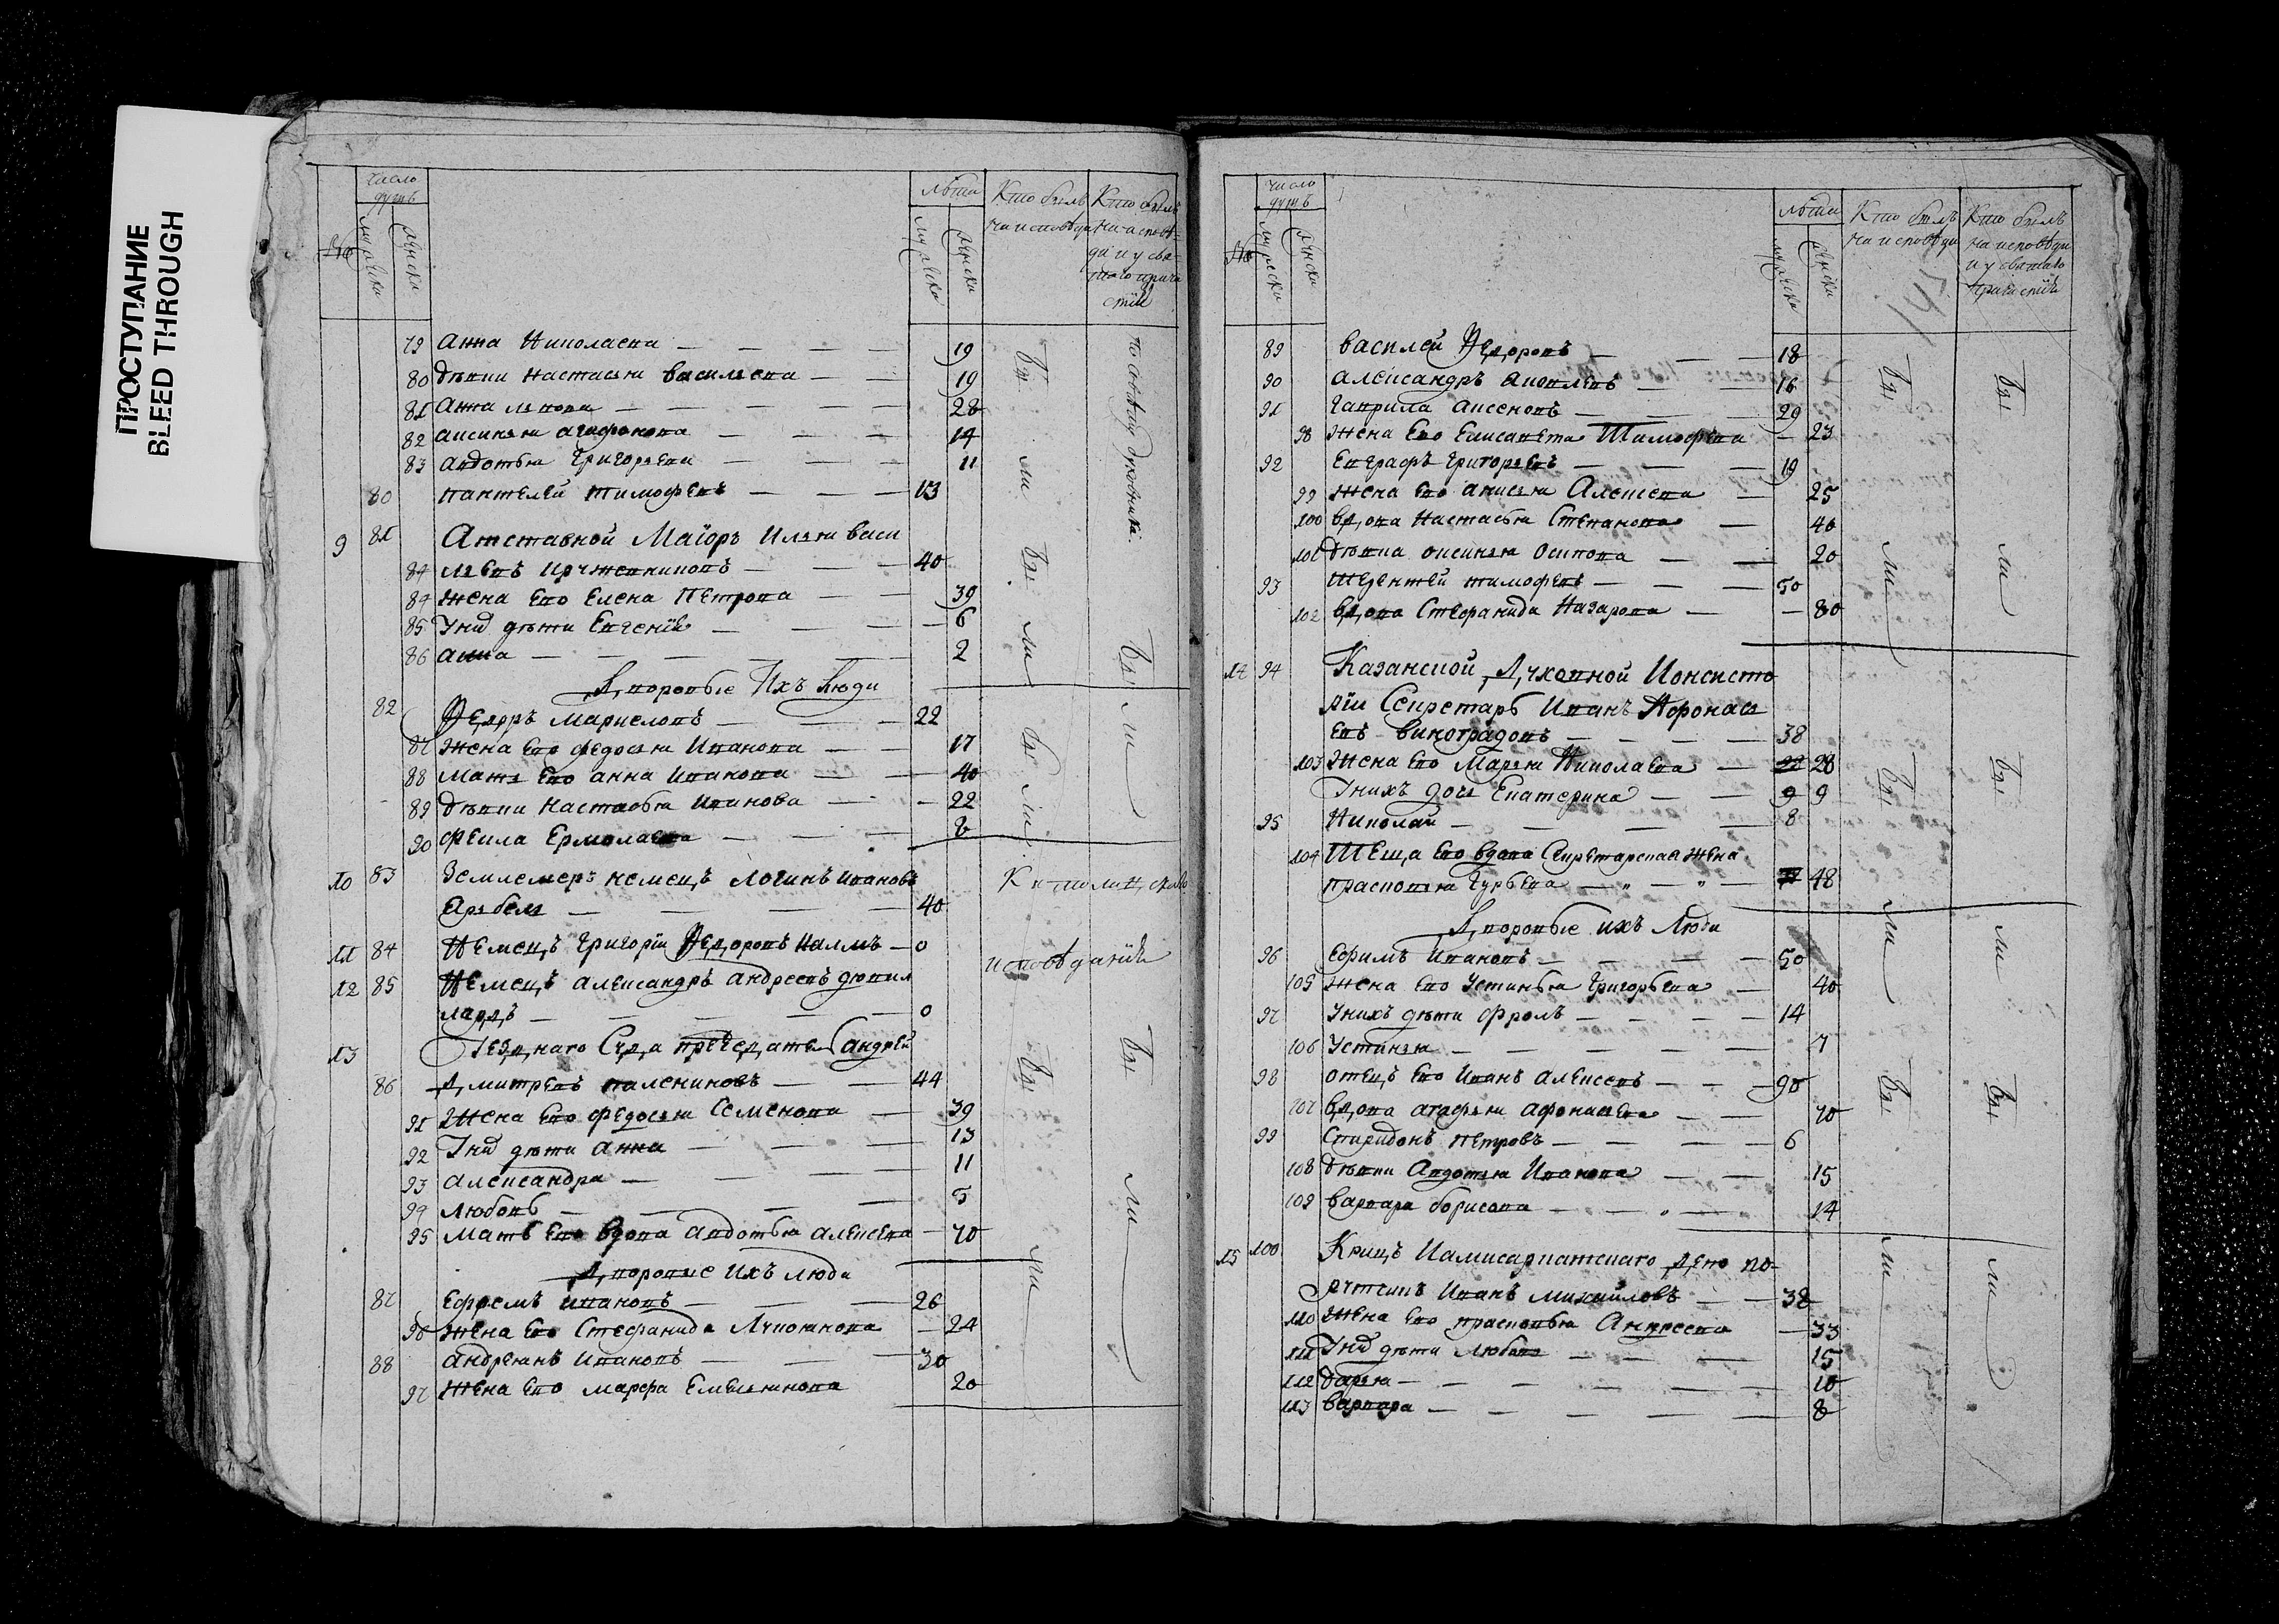 ПРОСТУПАНИЕ
BLEED THROUGH
число душъ
лѣта
Кто былъ на исповѣди
Кто былъ на исповѣди и у святаго причастїя
№
мужеска
женска
мужеска
женска
79 Анна Николаева — 19
80 дѣвки настасья василева — 19
81 Анна — 28
82 аксинья агафонова — 14
83 авдотья григорева — 11
80 пантелей тимофевъ — 13
9 81 Атставной Маїоръ Илья васи
левъ — 40
84 жена Ево Елена Петрова — 39
85 У нид дѣти Евгенїя — 6
86 анна — 2
Дворовые Ихъ Люди
82 Федоръ — 22
87 жена Ево федосья Иванова — 17
88 мать Ево анна Иванова — 40
89 дѣвки настасья Иванова — 22
90 фекла Ермолаева — 8
10 83 Землемеръ немецъ логинъ ивановъ
— 40
Католицскаго
11 84 Немецъ григорїи Федоровъ — 0
исповѣданїя
12 85 Немецъ александръ андреевъ
— 0
13 Уезднаго Суда андрей
86 Дмитревъ — 44
91 Жена Ево федосья Семенова — 39
92 У нид дѣти анна — 13
93 александра — 11
94 любовь — 5
95 мать Ево вдова авдотья алексева — 70
Дворовые Ихъ люди
87 Ефремъ ивановъ — 26
96 жена Ево Стефанида Лукоянова — 24
88 андреянъ Ивановъ — 30
97 жена Ево марфа Емельянова — 20
бы
ли
по совѣту духовника
число душъ
лѣта
Кто былъ на исповѣди
Кто былъ на исповѣди и у святаго причастїя
№
мужеска
женска
мужеска
женска
89 василей Федоровъ — 18
90 александръ — 16
91 гаврила аксеновъ — 29
98 жена Ево Елисавета Тимофѣва — 23
92 Евграфъ григоревъ — 19
99 жена Ево анисья Алексева — 25
100 вдова Настасья Степанова — 40
101 дѣвка оксинья осипова — 20
93 терентей тимофевъ — 50
102 вдова Стефанида Назарова — 80
14 94 Казанской Духовной Консисто
рїи Секретарь Иванъ Афонась
евъ виноградовъ — 38
103 Жена Ево Марья Николаева — 28
У нихъ дочь Екатерина — 9 9
95 Николай — 8
104 Теща Ево вдова Секретарская жена
прасковья гурьева — 48
Дворовые ихъ Люди
96 Ефимъ Ивановъ — 50
105 жена Ево Устинья Григорьева — 40
97 У нихъ дѣти фролъ — 14
106 Устинья — 7
98 отецъ Ево Иванъ алексевъ — 90
107 вдова агафья афонасьева — 70
99 Спиридонъ петровъ — 6
108 дѣвки Авдотья Иванова — 15
109 варвара борисова — 14
15 100 Крицъ Камисариатскаго депо по-
рутчикъ Иванъ михайловъ — 38
110 жена Ево прасковья Андреева — 33
111 У нид дѣти любовь — 15
112 дарья — 10
113 варвара — 8
бы
ли